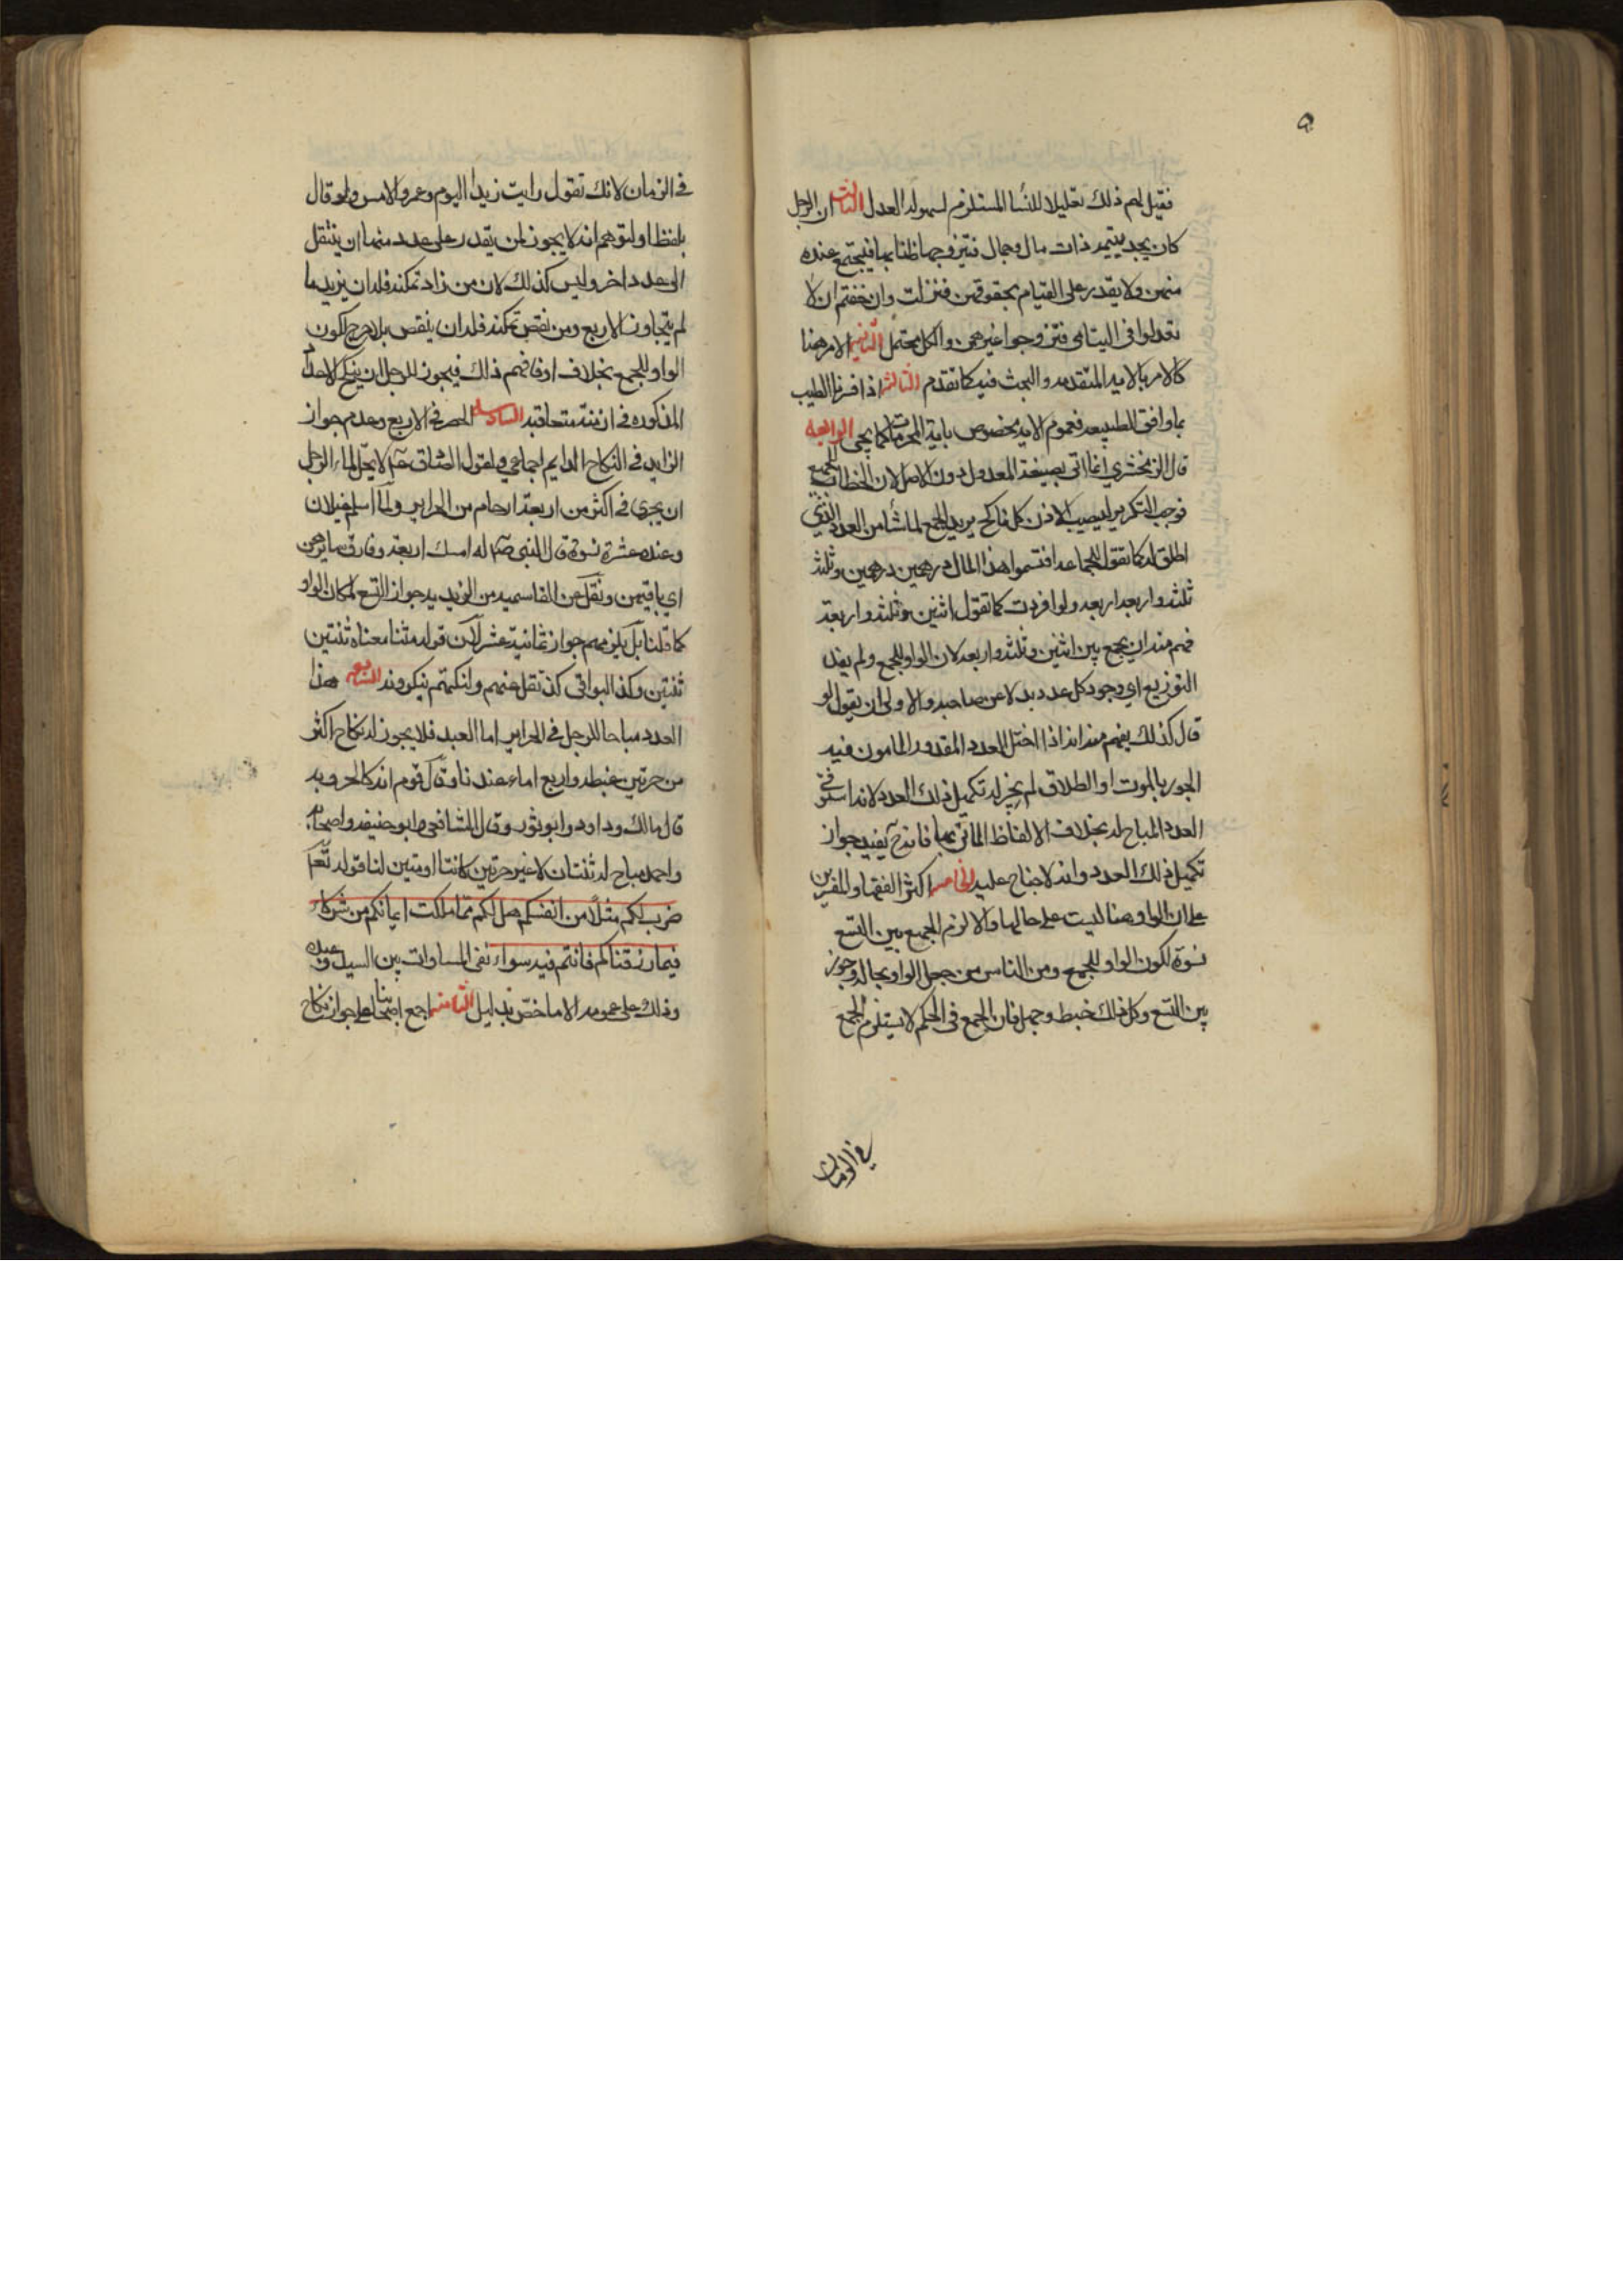 فقيل لهم ذلك تقليلا للنسا المستلزم لسهولة العدل الثالث ان الرجل
كان يجد يتيمه ذات مال وجمال فتزوجها ظنا بها فيجتمع عنده
منهن ولا يقدر على القيام بحقوقهن فنزلت وان خفتم ان لا
تعدلوا في اليتامى فتزوجوا غيرهن والكل محتمل الثانيه الامر هنا
كالامر بالايه المتقدمه والبحث فيه كما تقدم الثالثه اذا فسرنا الطيب
بما وافق الطبيعه فعموم الايه مخصوص باية المحرمات كما يجي الرابعه
قال الزمخشري انما اتى بصيغة المعدول دون الاصل لان الخطاب للجميع
فوجب التكرير ليصيب الاذن كل ناكح يريد الجمع لما شأ من العدد الذي
اطلق له كما تقول للجماعه اقتسموا هذا المال درهمين درهمين وثلثه
ثلثه واربعه اربعه ولو افردت كما تقول اثنين وثلثه واربعة
فهم منه ان يجمع بين اثنين وثلثه واربعه لان الواو للجمع ولم يفد
التوزيع اي وجود كل عدد بدلا عن صاحبه والاولى ان يقول لو
قال كذلك يفهم منه انه اذا اختل العدد المقدور المامون فيه
الجور بالموت او الطلاق لم يجز له تكميل ذلك العدد لانه استوفى
العدد المباح له بخلاف الالفاظ المأتى بها فانه ح يفيد جواز
تكميل ذلك العدد وانه لا جناح عليه الخامسه اكثر الفقها والمفسرين
على ان الواو هنا ليست على حالها والا لزم الجمع بين التسع
نسوة لكون الواو للجمع ومن الناس من جعل الواو بحاله وجوز
بين التسع وكل ذلك خبط وجهل فان الجمع في الحكم لا يستلزم الجمع
في الزمان
في الزمان لانك تقول رايت زيدا اليوم وعمروا لامس ولو قال
بلفظ او لتوهم انه لا يجوز لمن يقدر على عدد منها ان ينتقل
الى عدد اخر وليس كذلك لان من زاد تمكنه فله ان يزيد ما
لم يتجاوز الاربع ومن نقص تمكنه فله ان ينقص بلا حرج لكون
الواو للجمع بخلاف او فافهم ذلك فيجوز للرجل ان ينكح الاعداد
المذكوره في ازمنة متعاقبه السادسه الحصر في الاربع وعدم جواز
الزايد في النكاح الدايم اجماعي ولقول الصادق لا يحل لماء الرجل
ان يجري في اكثر من اربعة ارحام من الحراير ولما اسلم غيلان
وعنده عشرة نسوة قال النبي له امسك اربعة وفارق سايرهن
اي باقيهن ونقل عن القاسميه من الزيديه جواز التسع لمكان الواو
كما قلنا بل يلزمهم جواز ثمانية عشر لان قوله مثنا معناه ثنتين
ثنتين وكذا البواقي كذا نقل عنهم ولكنهم ينكرونه السابعه هذا
العدد مباحا للرجل في الحراير اما العبد فلا يجوز له نكاح اكثر
من حرتين غبطه واربع اماء عندنا وقال قوم انه كالحر وبه
قال مالك وداود وابو ثور وقال الشافعي وابو حنيفه واصحابه
واحمد مباح له ثنتان لا غير حرتين كانتا او متين لنا قوله تعا
ضرب لكم مثلا من انفسكم هل لكم مما ملكت ايمانكم من شركاء
فيما رزقناكم فانتم فيه سواء نفى المساوات بين السيد وعبده
وذلك على عمومه الا ما خص بدليل الثامنه اجمع اصحابنا على جواز نكاح